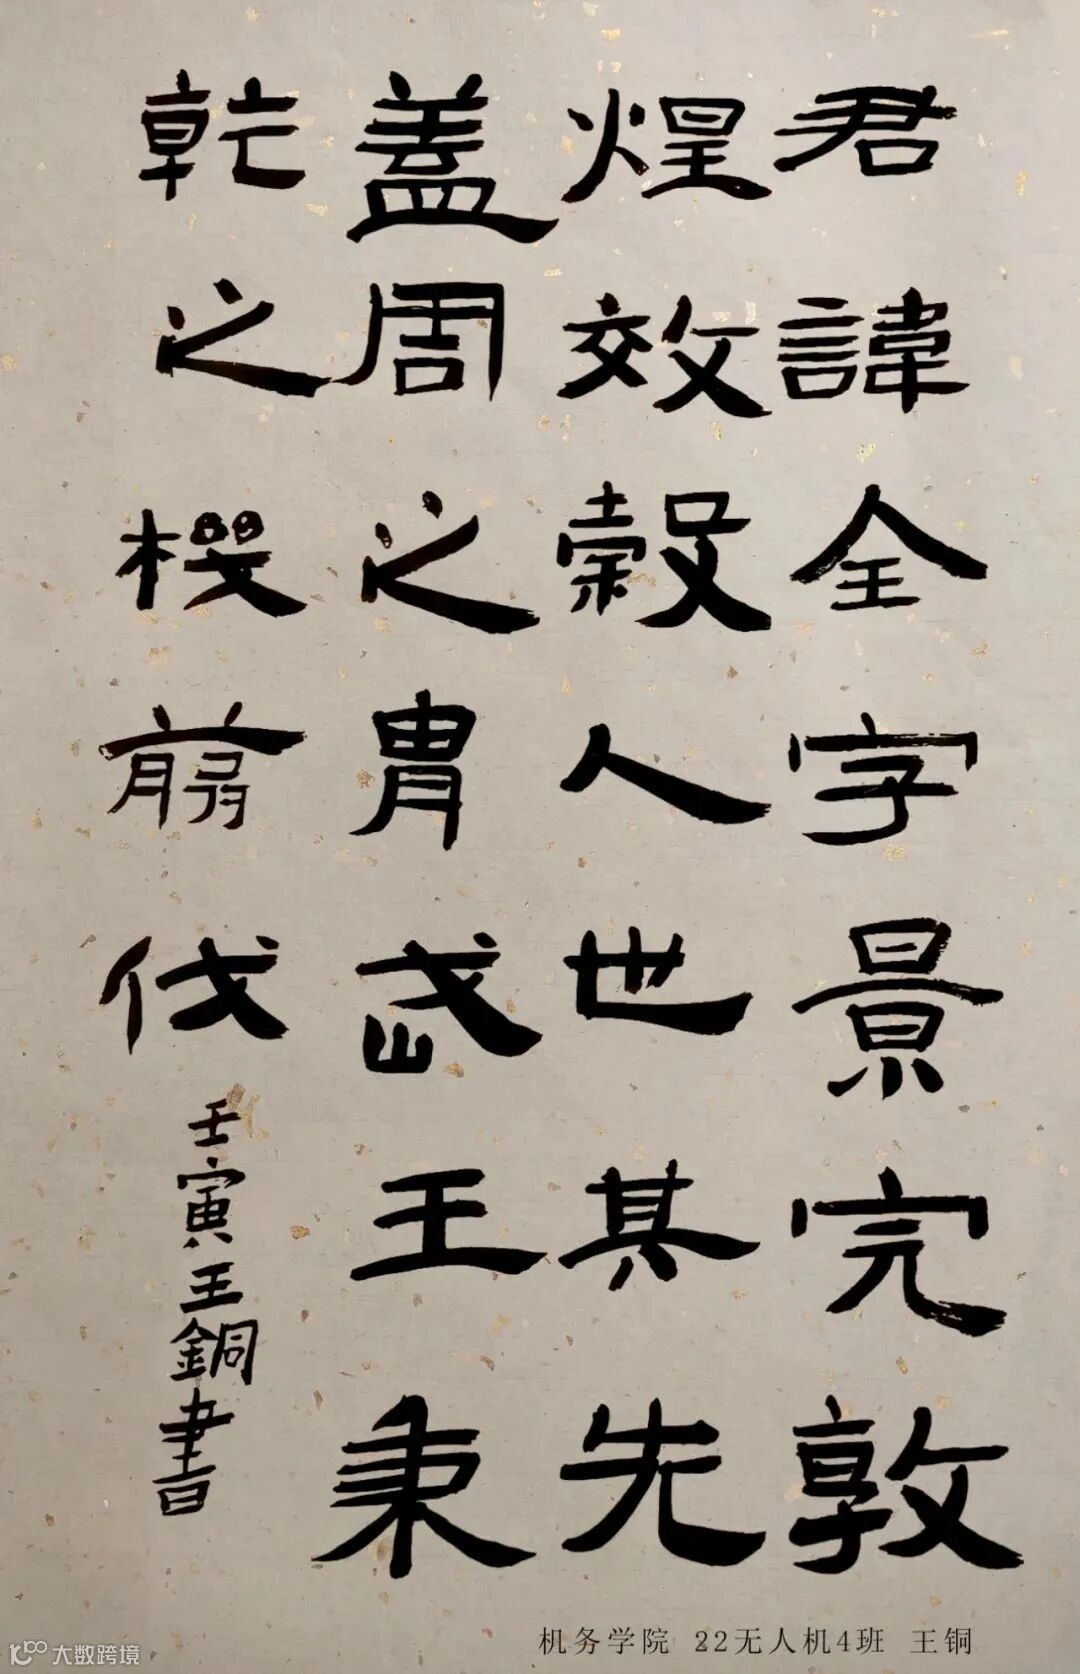 君諱全字景完敦
煌效穀人也其先
蓋周之胄武王秉
乾之机翦伐
壬寅王銅書
机务学院 22无人机4班 王铜
大数跨境